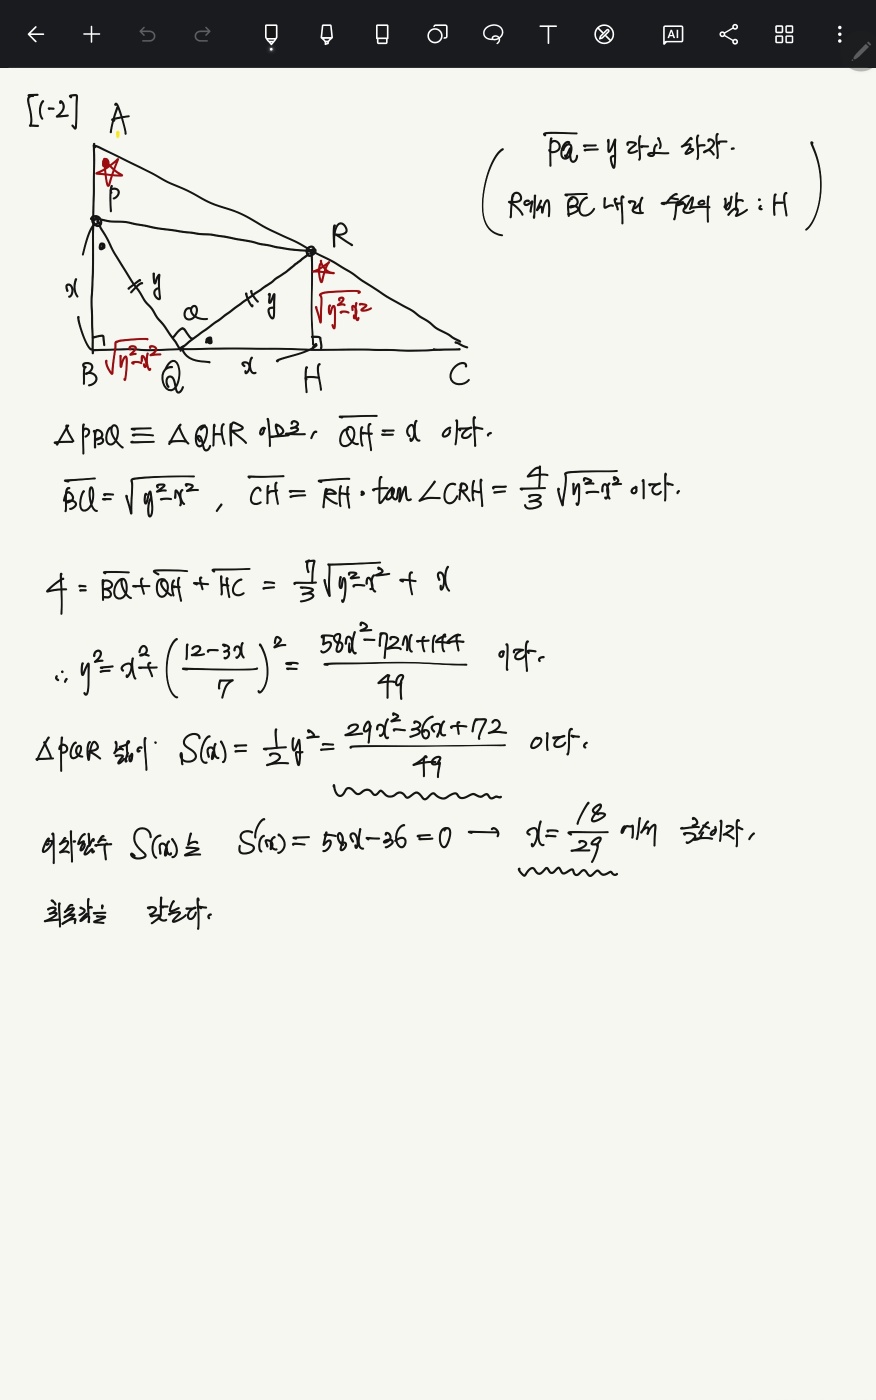 [1-2]
A
P
R
x
y
Q
y
√(y²-x²)
√(y²-x²)
x
B
Q
H
C
( PQ = y 라고 하자.
R에서 BC 내린 수선의 발 : H )
△PBQ ≡ △QHR 이므로, QH = x 이다.
BQ = √(y²-x²) , CH = RH · tan∠CRH = 4/3 √(y²-x²) 이다.
4 = BQ + QH + HC = 7/3 √(y²-x²) + x
∴ y² = x² + ((12-3x)/7)² = (58x²-72x+144)/49 이다.
△PQR 넓이 S(x) = 1/2 y² = (29x²-36x+72)/49 이다.
이차함수 S(x)는 S'(x) = 58x-36 = 0 → x = 18/29 에서 극소이자,
최솟값을 갖는다.